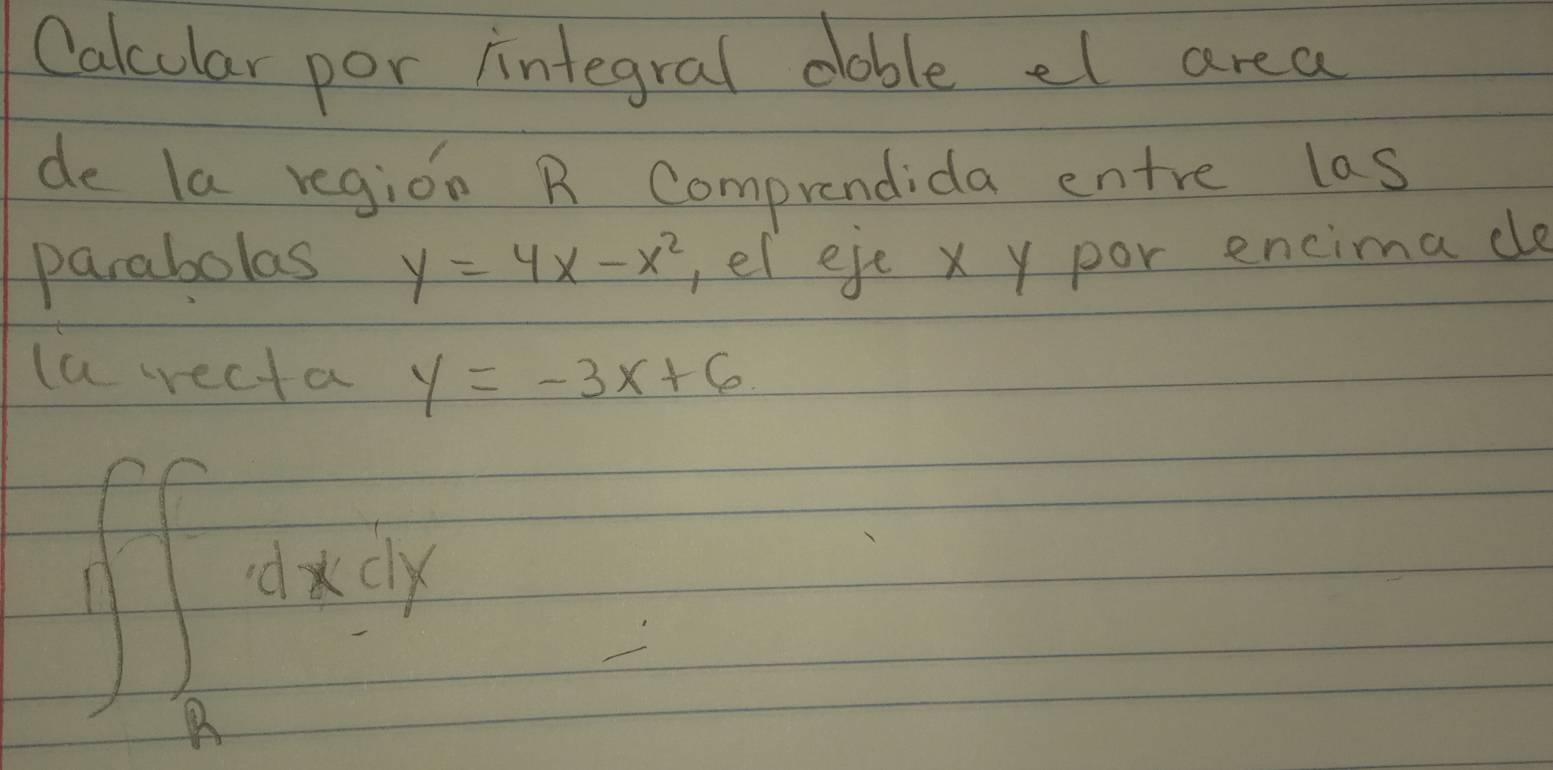 Calcular por integral doble el area
de la región R Comprendida entre las
parabolas y = 4x - x², el eje x y por encima de
la recta y = -3x + 6.
∬ dx dy
R